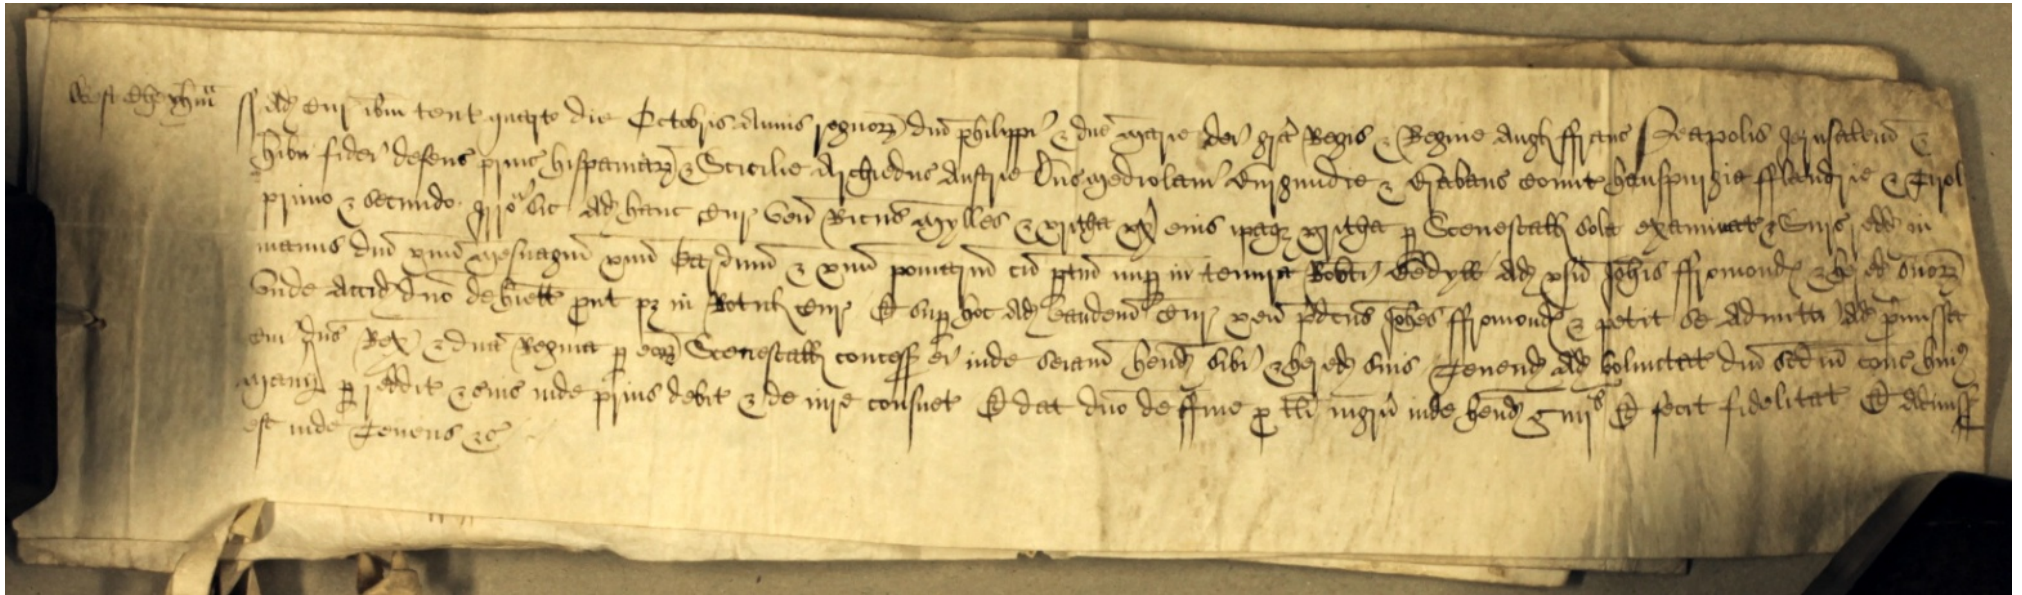 West Cheyham ss Ad Cur ibm tent quarto die Octobris Annis regnorz dni Philippi & dne Marie dei gra Regis & Regine Angl ffranc Neapolis Jerusalem &
Hibn fidei defens princ hispaniarz & Sicilie Archiduc Austrie Duc Mediolani Burgundie & Brabanc Comit haspurgie fflandrie & Tirol
primo & secundo irro sic Ad hanc Cur ven Ricus Mylles & ux eius ipaqz p Senescall sola examinat & surs redd in
manus dni unu mesuagiu unu gardinu & unu pomariu cu ptin nup in tenura Robti Ad usu Johis ffromond & hered suorz
unde Accid dno de hriett put pz in Rotul Cur Et sup hoc Ad eandem Cur ven pdcus Johes ffromond & petit se Admitti Ad pmissa
cui dns Rex & dna Regina p eorz Senescall concess ei inde seisam hend sibi & hered suis Tenend Ad voluntat dni scdm cons huius
Manij p reddit & svic inde prius debit & de iure consuet Et dat dno de ffine p tli ingru inde hend Et fecit fidelitat Et Admiss
est inde Tenens &c